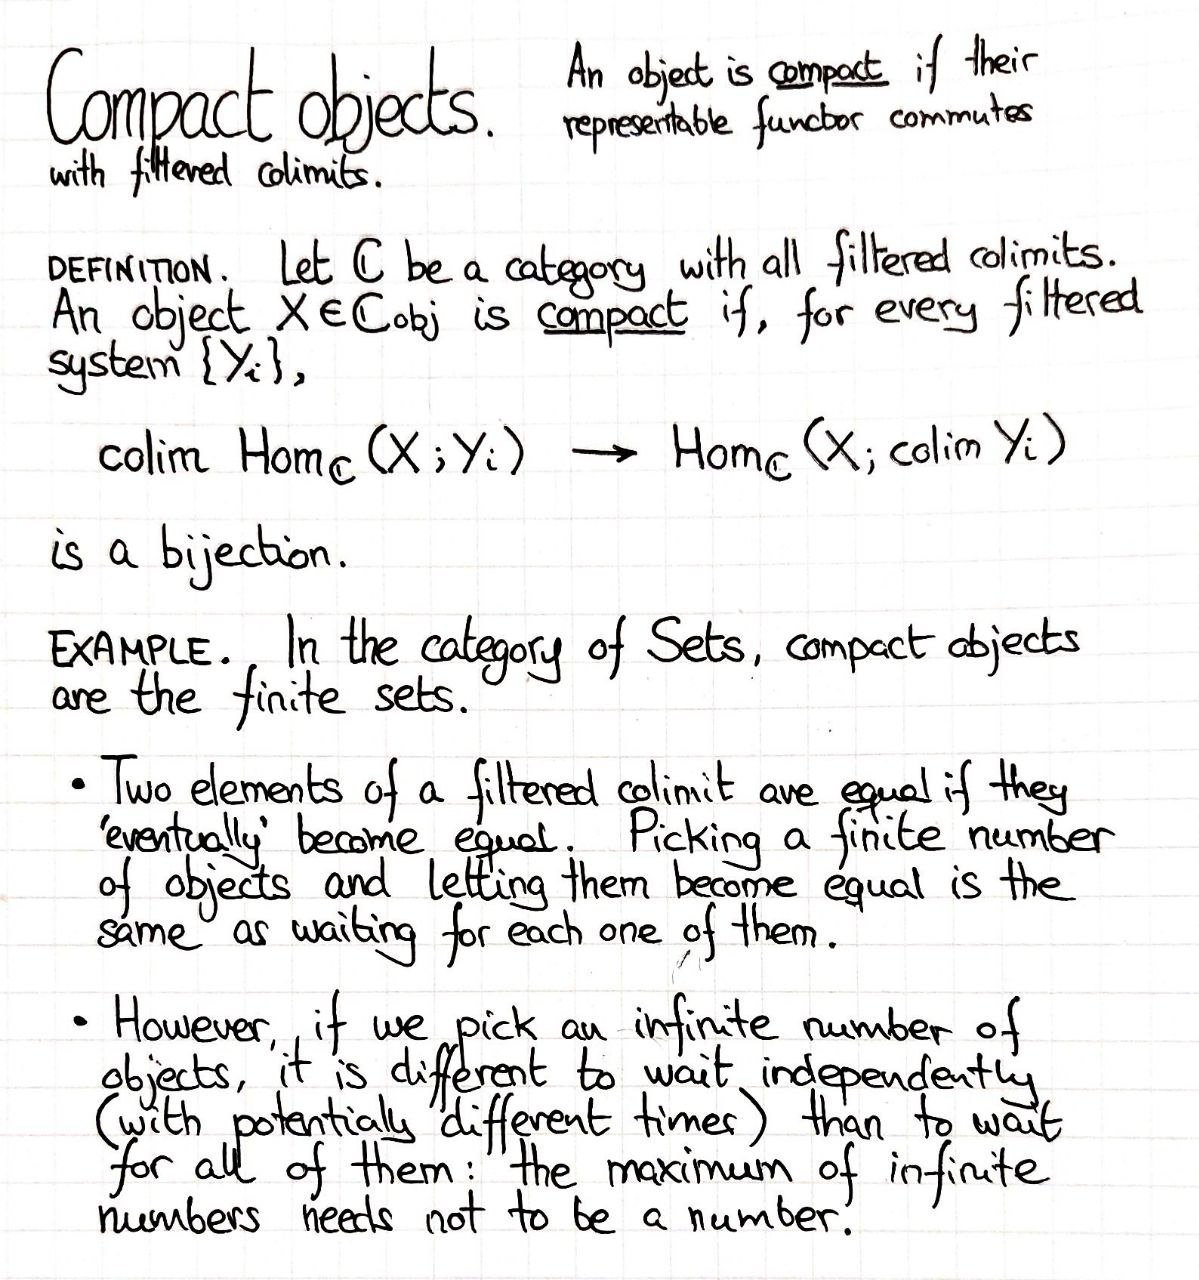 Compact objects. An object is compact if their
representable functor commutes
with filtered colimits.
DEFINITION. Let ℂ be a category with all filtered colimits.
An object X∈ℂobj is compact if, for every filtered
system {Yi},
colim Homℂ(X;Yi) → Homℂ(X; colim Yi)
is a bijection.
EXAMPLE. In the category of Sets, compact objects
are the finite sets.
• Two elements of a filtered colimit are equal if they
'eventually' become equal. Picking a finite number
of objects and letting them become equal is the
same as waiting for each one of them.
• However, if we pick an infinite number of
objects, it is different to wait independently
(with potentialy different times) than to wait
for all of them: the maximum of infinite
numbers needs not to be a number.